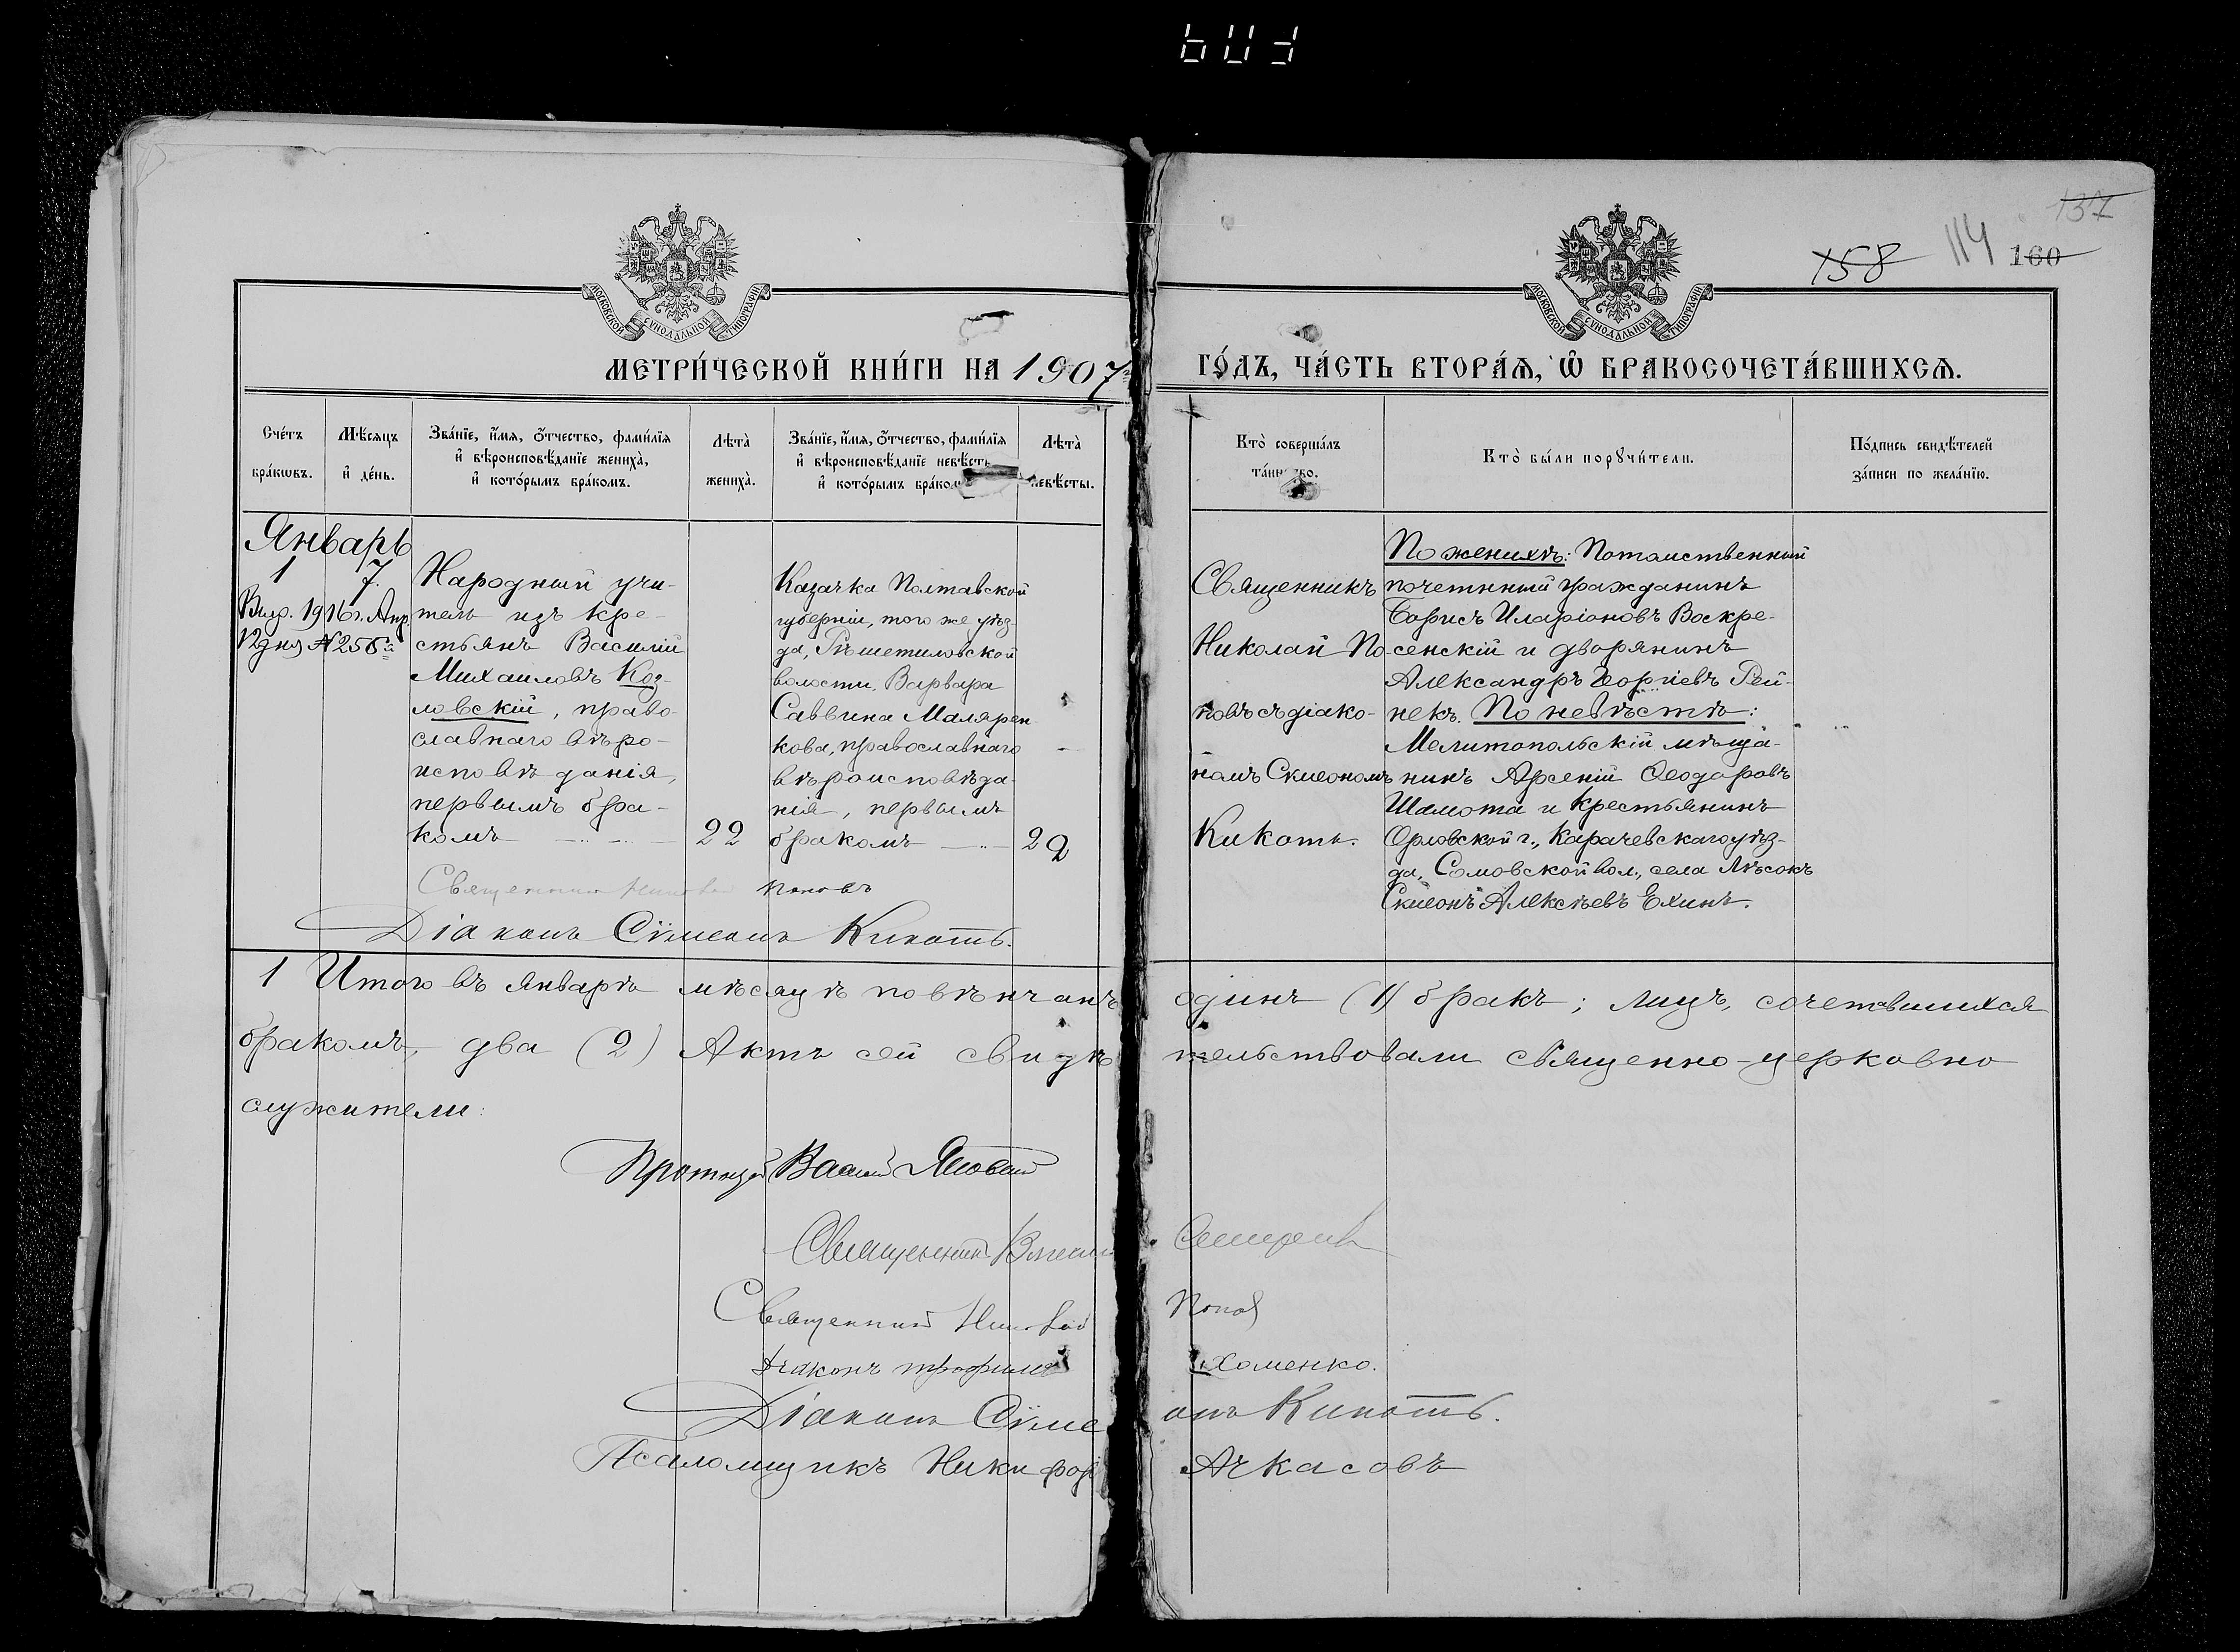 137
158 114 160
МОСКОВСКОЙ СУНОДАЛЬНОЙ ТИПОГРАФІИ
МОСКОВСКОЙ СУНОДАЛЬНОЙ ТИПОГРАФІИ
МЕТРИ́ЧЕСКОЙ КНИ́ГИ НА 1907
ГО́ДЪ, ЧА́СТЬ ВТОРА́Ѧ, Ѽ БРАКОСОЧЕТА́ВШИХСѦ.
Сче́тъ
бра́кѡвъ.
Мѣ́сяцъ
и҆ де́нь.
Зва́нїе, и҆́мѧ, о҆́тчество, фами́лїѧ
и҆ вѣроисповѣ́данїе жениха̀,
и҆ кото́рымъ бра́комъ.
Лѣта̀
жениха̀.
Зва́нїе, и҆́мѧ, о҆́тчество, фами́лїѧ
и҆ вѣроисповѣ́данїе невѣ́сты
и҆ кото́рымъ бра́ком
Лѣта̀
невѣ́сты.
Кто̀ соверша́лъ
та́инство.
Кто̀ бы́ли порꙋчи́тели.
По́дпись свидѣ́телей
за́писи по жела́нїю.
Январь
1
7.
Выд. 1916 г. Апр.
12 дня № 256
Народный учи-
тель изъ кре-
стьянъ Василій
Михаиловъ Коз-
ловскій, право-
славнаго вѣро-
исповѣданія,
первымъ бра-
комъ
22
Казачка Полтавской
губерніи, того же уѣз-
да, Рѣшетиловской
волости, Варвара
Саввина Малярен-
кова, православнаго
вѣроисповѣда-
нія, первымъ
бракомъ
22
Священникъ
Николай По-
повъ съ діако-
номъ Сѵмеономъ
Кикоть.
По женихѣ: Потомственный
почетный гражданинъ
Борисъ Иларіоновъ Воскре-
сенскій и дворянинъ
Александръ Георгіевъ Рей-
некъ. По невѣстѣ:
Мелитопольскій мѣща-
нинъ Арсеній Ѳеодоровъ
Шамота и крестьянинъ
Орловской г., Карачевскаго уѣз-
да, Сомовской вол., села Лѣсокъ
Сѵмеонъ Алексѣевъ Ехинъ.
Священникъ Николай Поповъ
Діаконъ Сѵмеонъ Кикоть.
1 Итого въ январѣ мѣсяцѣ повѣнчанъ одинъ (1) бракъ; лицъ, сочетавшихся
бракомъ, два (2) Актъ сей свидѣтельствовали священно-церковно
служители:
Протоіерей Василій
Священникъ
Священникъ Николай Поповъ
Діаконъ Трофимъ Хоменко.
Діаконъ Сѵмеонъ Кикоть.
Псаломщикъ Никифоръ Ачкасовъ